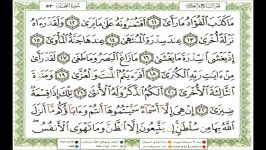 ٥٣
مَا كَذَبَ ٱلْفُؤَادُ مَا رَأَىٰٓ ١١ أَفَتُمَٰرُونَهُۥ عَلَىٰ مَا يَرَىٰ ١٢ وَلَقَدْ رَءَاهُ
نَزْلَةً أُخْرَىٰ ١٣ عِندَ سِدْرَةِ ٱلْمُنتَهَىٰ ١٤ عِندَهَا جَنَّةُ ٱلْمَأْوَىٰٓ ١٥
إِذْ يَغْشَى ٱلسِّدْرَةَ مَا يَغْشَىٰ ١٦ مَا زَاغَ ٱلْبَصَرُ وَمَا طَغَىٰ ١٧ لَقَدْ رَأَىٰ
مِنْ ءَايَٰتِ رَبِّهِ ٱلْكُبْرَىٰٓ ١٨ أَفَرَءَيْتُمُ ٱللَّٰتَ وَٱلْعُزَّىٰ ١٩ وَمَنَوٰةَ
ٱلثَّالِثَةَ ٱلْأُخْرَىٰٓ ٢٠ أَلَكُمُ ٱلذَّكَرُ وَلَهُ ٱلْأُنثَىٰ ٢١ تِلْكَ إِذًا قِسْمَةٌ
ضِيزَىٰٓ ٢٢ إِنْ هِىَ إِلَّآ أَسْمَآءٌ سَمَّيْتُمُوهَآ أَنتُمْ وَءَابَآؤُكُم مَّآ أَنزَلَ
ٱللَّهُ بِهَا مِن سُلْطَٰنٍ إِن يَتَّبِعُونَ إِلَّا ٱلظَّنَّ وَمَا تَهْوَى ٱلْأَنفُسُ